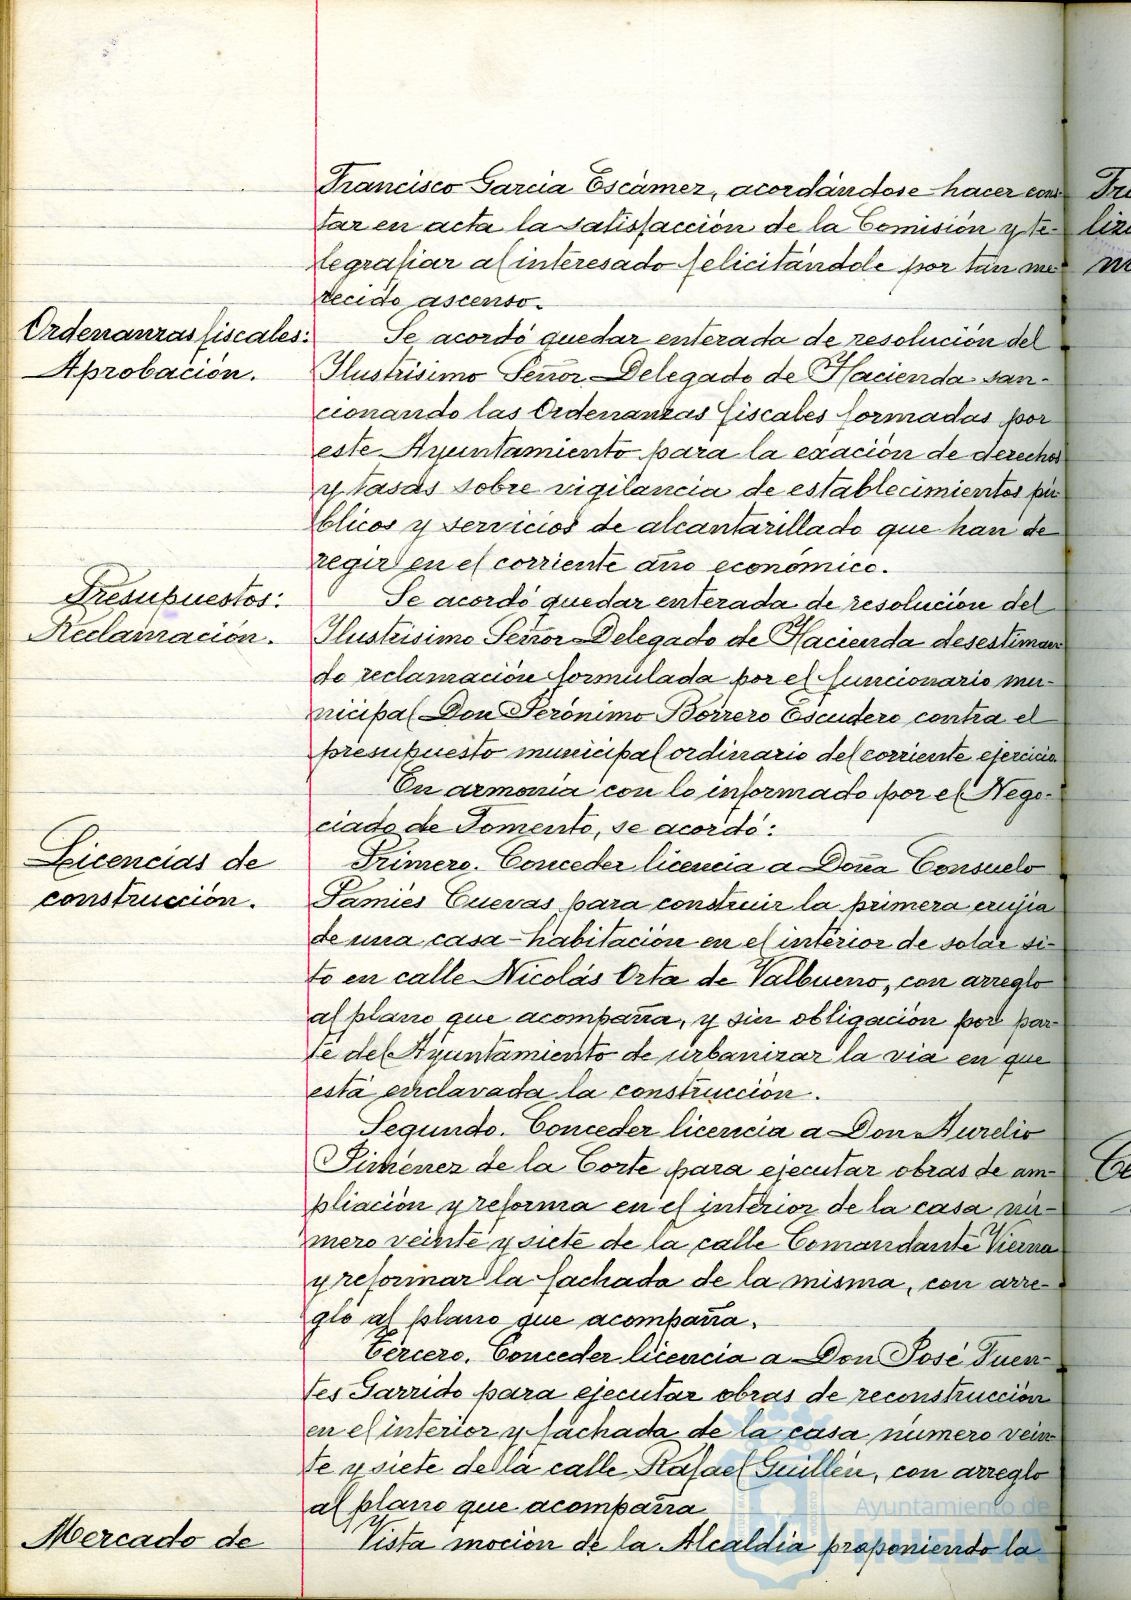 Francisco Garcia Escámez, acordándose hacer cons-
tar en acta la satisfacción de la Comisión y te-
legrafiar al interesado felicitándole por tan me-
recido ascenso.
Ordenanzas fiscales:
Aprobación.
Se acordó quedar enterada de resolución del
Ilustrísimo Señor Delegado de Hacienda san-
cionando las Ordenanzas fiscales formadas por
este Ayuntamiento para la exación de derechos
y tasas sobre vigilancia de establecimientos pú-
blicos y servicios de alcantarillado que han de
regir en el corriente año económico.
Presupuestos:
Reclamación.
Se acordó quedar enterada de resolución del
Ilustrísimo Señor Delegado de Hacienda desestiman-
do reclamación formulada por el funcionario mu-
nicipal Don Jerónimo Borrero Escudero contra el
presupuesto municipal ordinario del corriente ejercicio.
En armonía con lo informado por el Nego-
ciado de Fomento, se acordó:
Licencias de
construcción.
Primero. Conceder licencia a Doña Consuelo
Pamiés Cuevas para construir la primera crujía
de una casa-habitación en el interior de solar si-
to en calle Nicolás Orta de Valbueno, con arreglo
al plano que acompaña, y sin obligación por par-
te del Ayuntamiento de urbanizar la via en que
está enclavada la construcción.
Segundo. Conceder licencia a Don Aurelio
Jiménez de la Corte para ejecutar obras de am-
pliación y reforma en el interior de la casa nú-
mero veinte y siete de la calle Comandante Vierna
y reformar la fachada de la misma, con arre-
glo al plano que acompaña.
Tercero. Conceder licencia a Don José Fuen-
tes Garrido para ejecutar obras de reconstrucción
en el interior y fachada de la casa número vein-
te y siete de la calle Rafael Guillén, con arreglo
al plano que acompaña
Mercado de
Vista moción de la Alcaldía proponiendo la
Ayuntamiento de
HUELVA